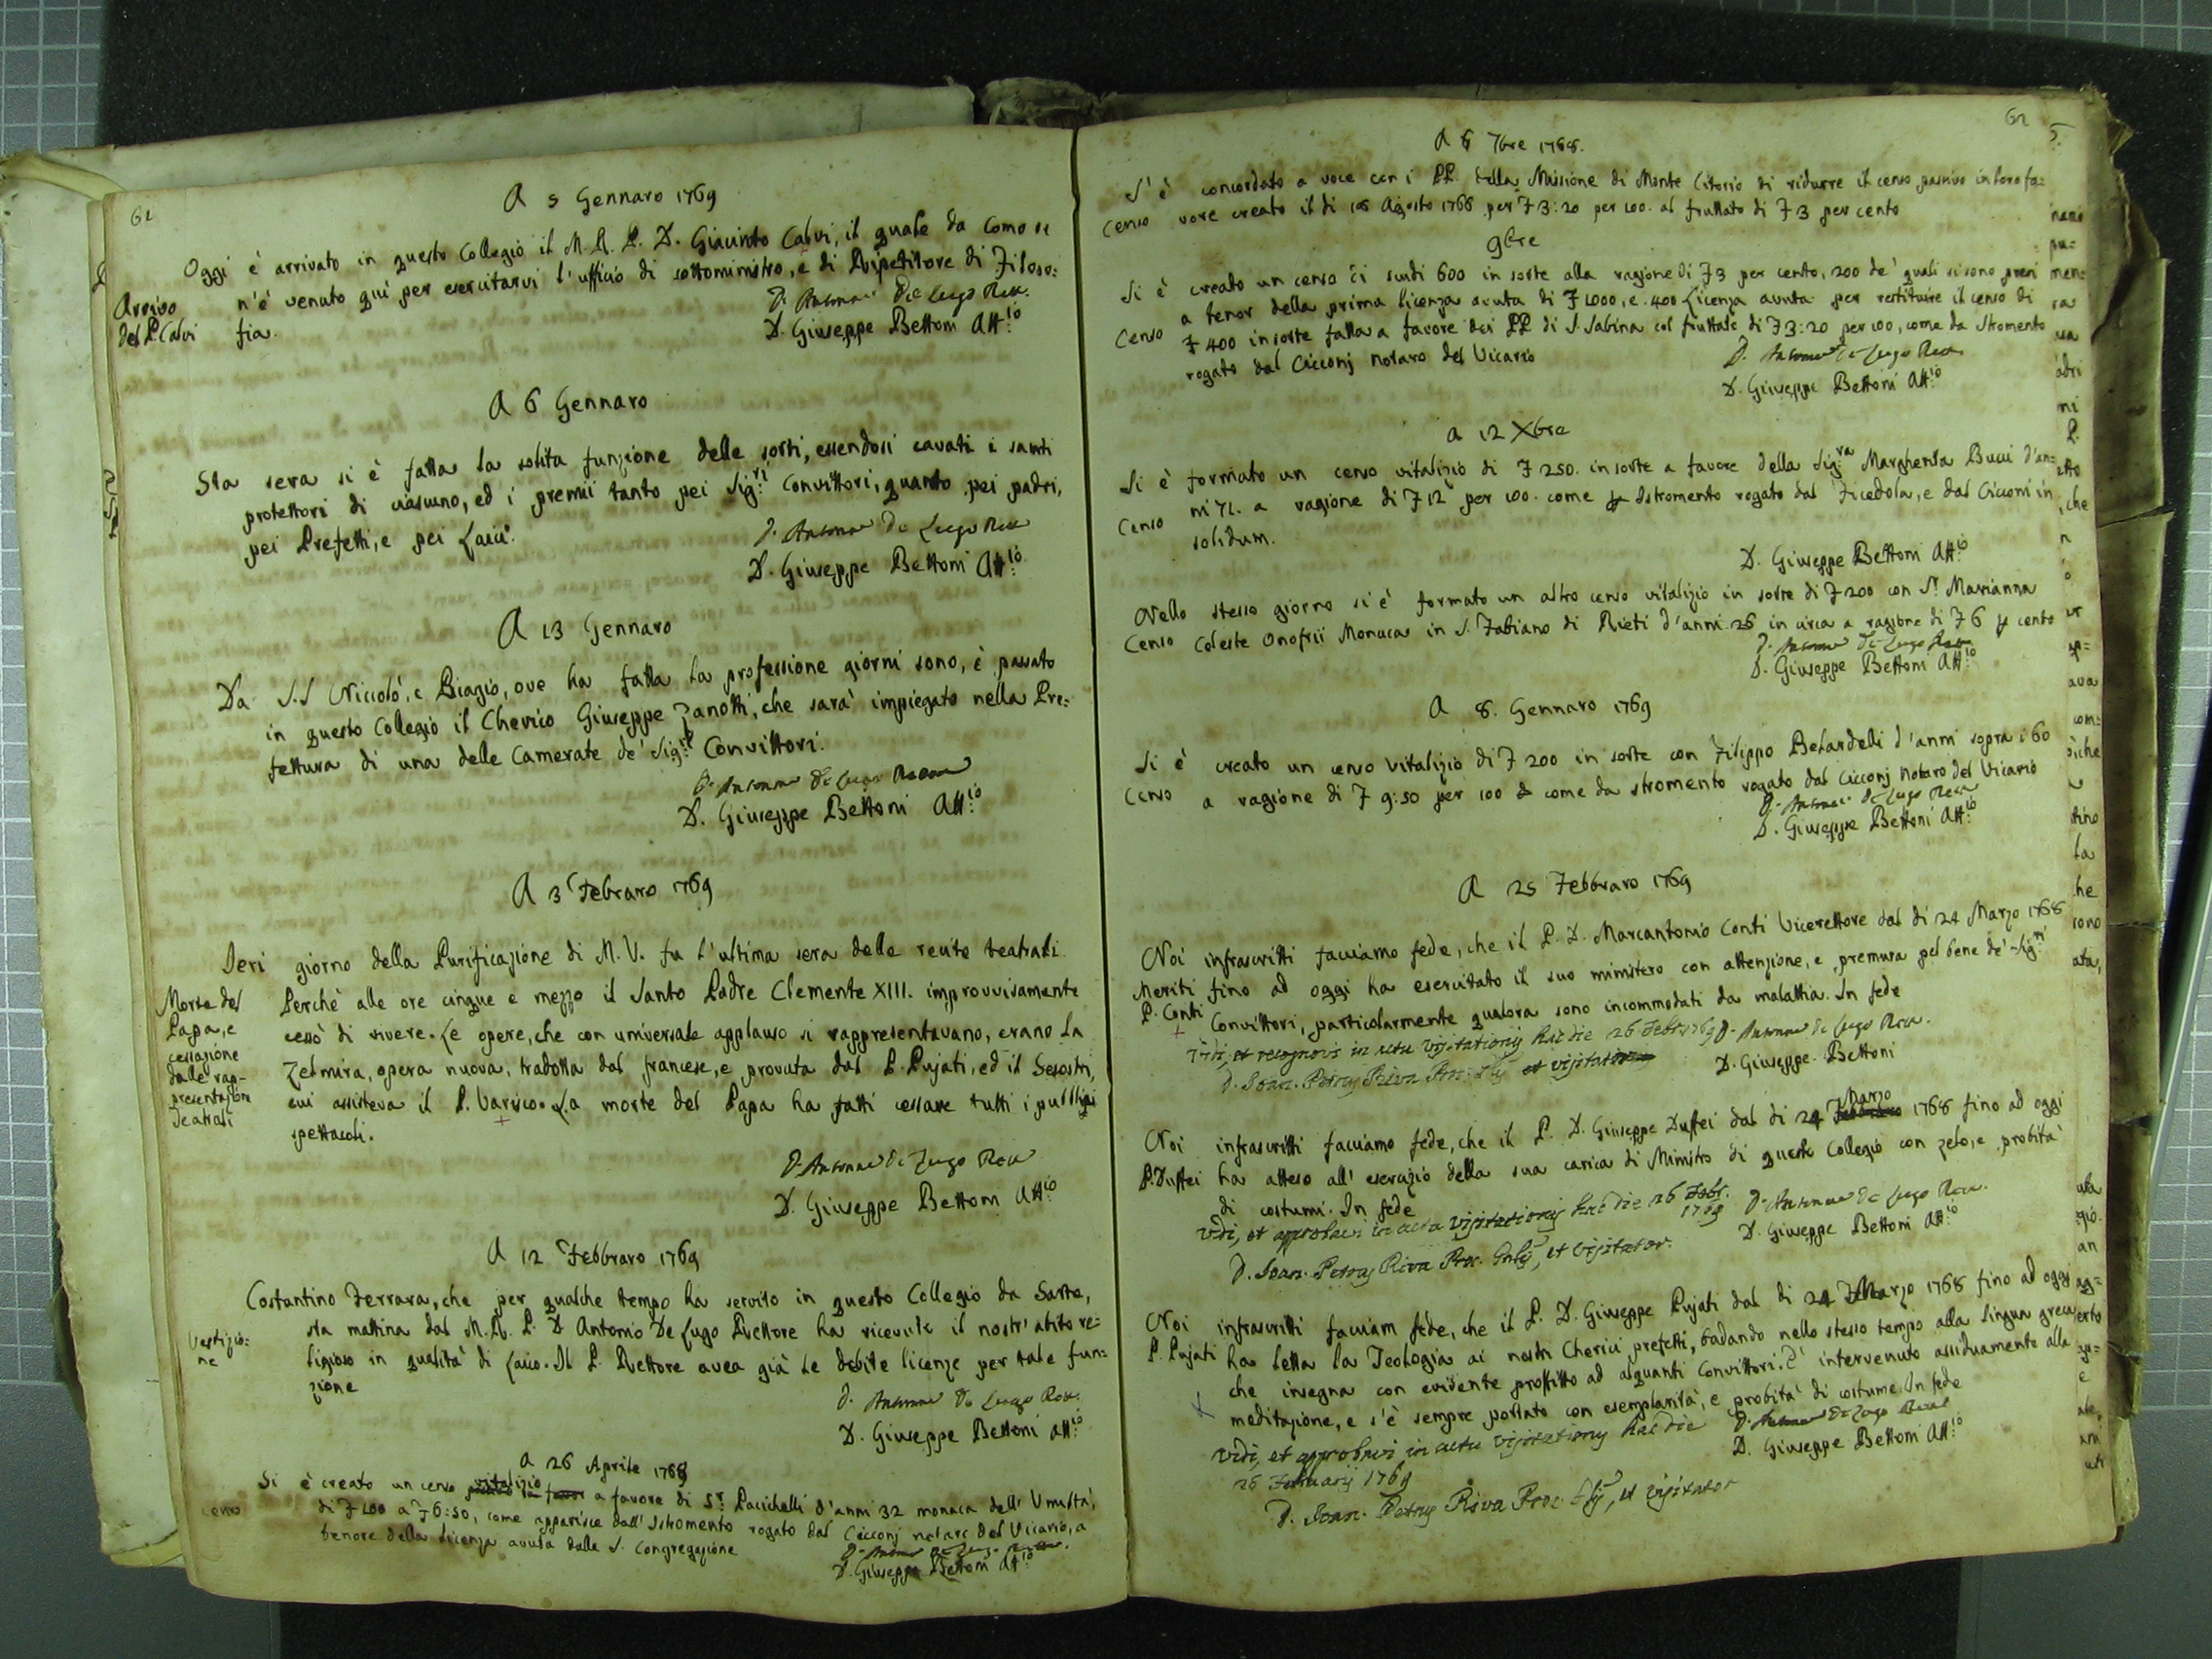 62
A 5 Gennaro 1769
Oggi è arrivato in questo Collegio il M. R. P. D. Giacinto Calvi, il quale da Como se
Arrivo
del P. Calvi
n'è venuto quì per esercitarvi l'ufficio di sottoministro, e di Ripetitore di Filoso:
fia.
D. Antonio De Lugo Rett.
D. Giuseppe Bettoni Att:io
A 6 Gennaro
Sta sera si è fatta la solita funzione delle sorti, essendosi cavati i santi
protettori di ciascuno, ed i premii tanto pei Sig:ri Convittori, quanto pei padri,
pei Prefetti, e pei Laici.
D. Antonio De Lugo Rett
D. Giuseppe Bettoni Att:io
A 13 Gennaro
Da S.S Niccolò, e Biagio, ove ha fatta la professione giorni sono, è passato
in questo Collegio il Cherico Giuseppe Zanotti, che sarà impiegato nella Pre:
fettura di una delle Camerate de' Sig:ri Convittori.
D. Antonio De Lugo
D. Giuseppe Bettoni Att:io
A 3 Febraro 1769
Ieri giorno della Purificazione di M. V. fu l'ultima sera delle recite teatrali.
Morte del
Papa, e
cessazione
dalle rap-
presentazioni
Teatrali
Perchè alle ore cinque e mezzo il Santo Padre Clemente XIII. improvvisamente
cessò di vivere. Le opere, che con universale applauso si rappresentavano, erano la
Zelmira, opera nuova, tradotta dal francese, e provata dal P. Pujati, ed il Sesostri,
cui assisteva il P. Varisco. La morte del Papa ha fatti cessare tutti i pubblici
spettacoli.
D. Antonio De Lugo Rett
D. Giuseppe Bettoni Att:io
A 12 Febbraro 1769
Costantino Ferrara, che per qualche tempo ha servito in questo Collegio da Sarto,
Vestizio:
ne
sta mattina dal M. R. P. D Antonio De Lugo Rettore ha ricevuto il nostr'abito re:
ligioso in qualità di Laico. Il P. Rettore avea già le debite licenze per tale fun:
zione
D. Antonio De Lugo Rett.
D. Giuseppe Bettoni Att:io
A 26 Aprile 1768
Si è creato un censo vitalizio a favore di Sr. Pacichelli d'anni 32 monaca dell' Umiltà,
censo
di 7 200 a 7 6:50, come apparisce dall' Istromento rogato dal Cicconj notaro del Vicario, a
tenore della licenza avuta dalla S. Congregazione
D. Giuseppe Bettoni Att:io
62
5.
A 6 7bre 1768.
S'è concordato a voce con i PP. della Missione di Monte Citorio di ridurre il censo passivo in loro fa:
Censo
vore creato il dì 18 Agosto 1766 per 7 3:20 per 100. al fruttato di 7 3 per cento
9bre
Si è creato un censo di scudi 600 in sorte alla ragione di 7 3 per cento, 200 de' quali si sono presi
a tenor della prima licenza avuta di 7 1000, e 400 Licenza avuta per restituire il censo di
Censo
7 400 in sorte fatta a favore dei PP di S. Sabina col fruttato di 7 3:20 per 100, come da Stromento
rogato dal Cicconj notaro del Vicario
D. Antonio De Lugo Rett
D. Giuseppe Bettoni Att:io
A 12 Xbre
Si è formato un censo vitalizio di 7 250. in sorte a favore della Sig:ra Margherita Bucci d'an:
Censo
ni 71. a ragione di 7 12 per 100. come p Istromento rogato dal Ficedola, e dal Cicconi in
solidum.
D. Giuseppe Bettoni Att:io
Nello stesso giorno si è formato un altro censo vitalizio in sorte di 7 200 con Sr. Marianna
Censo
Celeste Onofrii Monaca in S. Fabiano di Rieti d'anni 26 in circa a ragione di 7 6 p cento
D. Antonio De Lugo Rett
D. Giuseppe Bettoni Att:io
A 8. Gennaro 1769
Si è creato un censo vitalizio di 7 200 in sorte con Filippo Belardelli d'anni sopra i 60
Censo
a ragione di 7 9:50 per 100 come da stromento rogato dal Cicconj notaro del Vicario
D. Antonio De Lugo Rett
D. Giuseppe Bettoni Att:io
A 25 Febbraro 1769
Noi infrascritti facciamo fede, che il P. D. Marcantonio Conti Vicerettore dal dì 24 Marzo 1768
Meriti
P. Conti
fino ad oggi ha esercitato il suo ministero con attenzione, e premura pel bene de' Sig:ri
Convittori, particolarmente qualora sono incommodati da malattia. In fede
Vidi, et recognovi in actu visitationis hac die 26 Febr. 1769
D. Antonio De Lugo Rett.
D. Joan. Petrus Riva et visitator
D. Giuseppe Bettoni
Noi infrascritti facciamo fede, che il P. D. Giuseppe Duffei dal dì 24 Marzo 1768 fino ad oggi
P. Duffei
ha atteso all' esercizio della sua carica di Ministro di questo Collegio con zelo, e probità
di costumi. In fede
Vidi, et approbavi in actu visitationis hac die 26 Febr. 1769
D. Antonio De Lugo Rett.
D. Giuseppe Bettoni Att:io
D. Joan. Petrus Riva Proc. Gnlis, et visitator.
Noi infrascritti facciam fede, che il P. D. Giuseppe Pujati dal dì 24 Marzo 1768 fino ad oggi
P. Pujati
ha letta la Teologia ai nostri Cherici prefetti, badando nello stesso tempo alla lingua greca
che insegna con evidente profitto ad alquanti Convittori. È intervenuto assiduamente alla
meditazione, e s'è sempre portato con esemplarità, e probità di costume. In fede
Vidi, et approbavi in actu visitationis hac die
26 Februarii 1769
D. Antonio De Lugo Rett
D. Giuseppe Bettoni Att:io
D. Joan. Petrus Riva Proc. Glis, et visitator